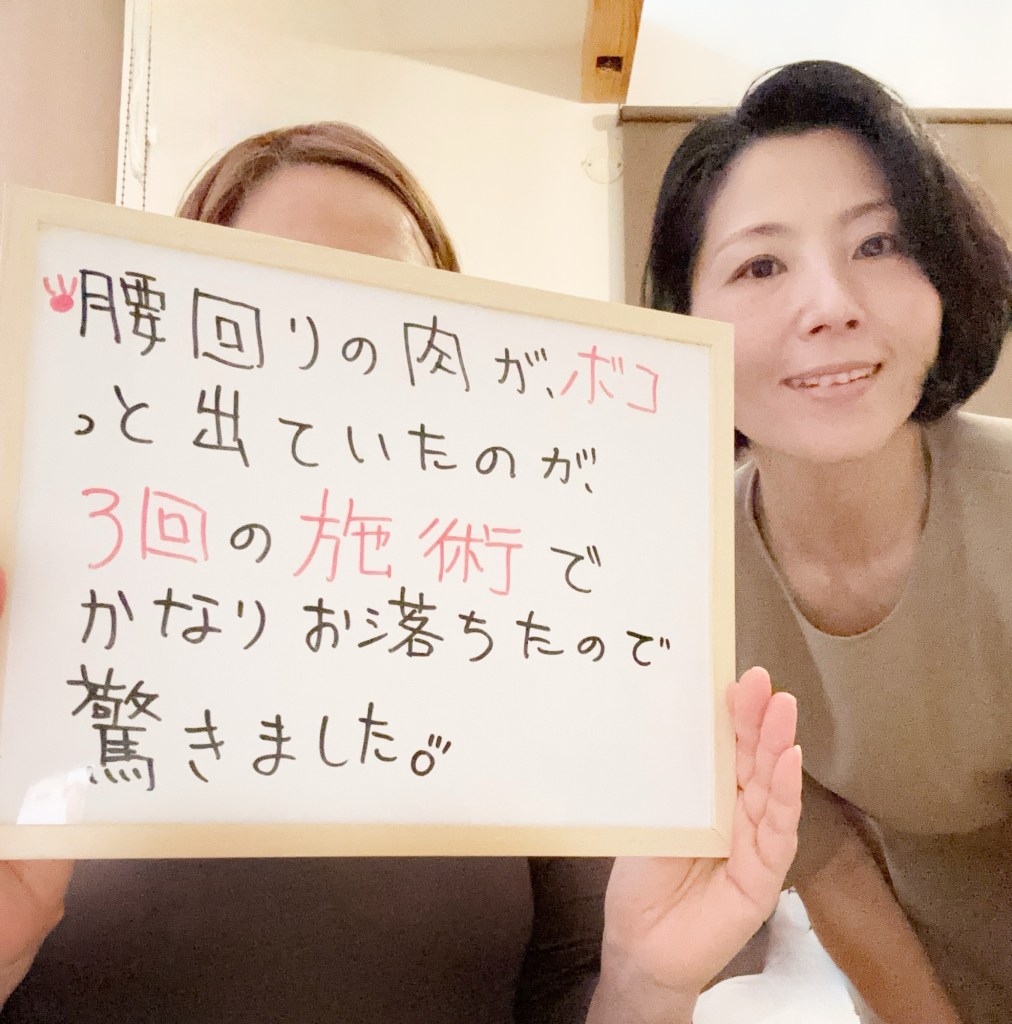 腰回りの肉が、ボコ
っと出ていたのが、
3回の施術で
かなりお落ちたので
驚きました。